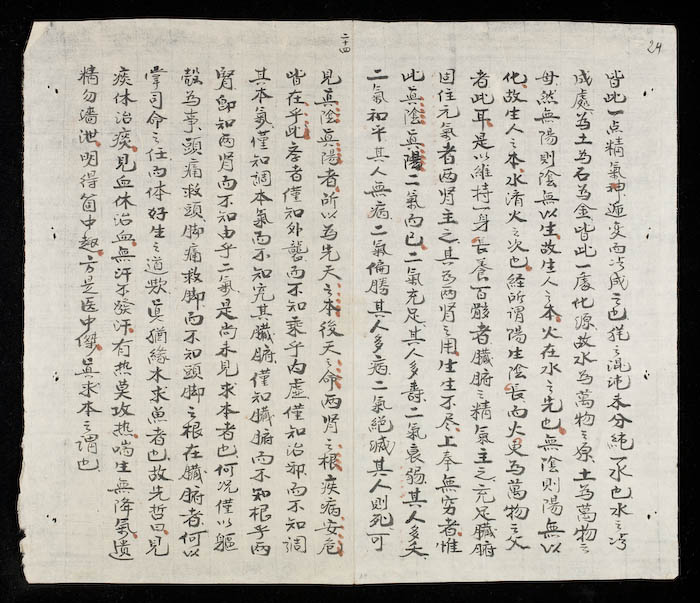 24
皆此一点精氣神逓变而凝成之也猶之混沌未分純一水也水之凝
成處為土為石為金皆此一處化源故水為萬物之原土為萬物之
母然無陽則陰無以生故生人之本火在水之先也無陰則陽無以
化故生人之本水濟火之次也経所謂陽生陰長而火更為萬物之父
者此耳是以維持一身長養百骸者臟腑之精氣主之充足臟腑
固住元氣者両肾主之其為両肾之用生生不尽上奉無穷者惟
此真陰真陽二氣而已二氣充足其人多壽二氣衰弱其人多夭
二氣和平其人無病二氣偏勝其人多病二氣絶滅其人則死可
二十四
見真陰真陽者所以為先天之本後天之命両肾之根疾病安危
皆在乎此李者僅知外襲而不知乘乎内虚僅知治邪而不知調
其本氣僅知調本氣而不知充其臟腑僅知臟腑而不知根乎両
腎即知両肾而不知由乎二氣是尚未見求本者也何况僅以軀
殼為事頭痛救頭脚痛救脚而不知頭脚之根在臟腑者何以
掌司命之任而体好生之道歟真猶緣木求魚者也故先哲曰見
痰休治痰見血休治血無汗不發汗有热莫攻热喘生無降氣遺
精勿濇泄明得箇中趣方是医中傑真求本之謂也